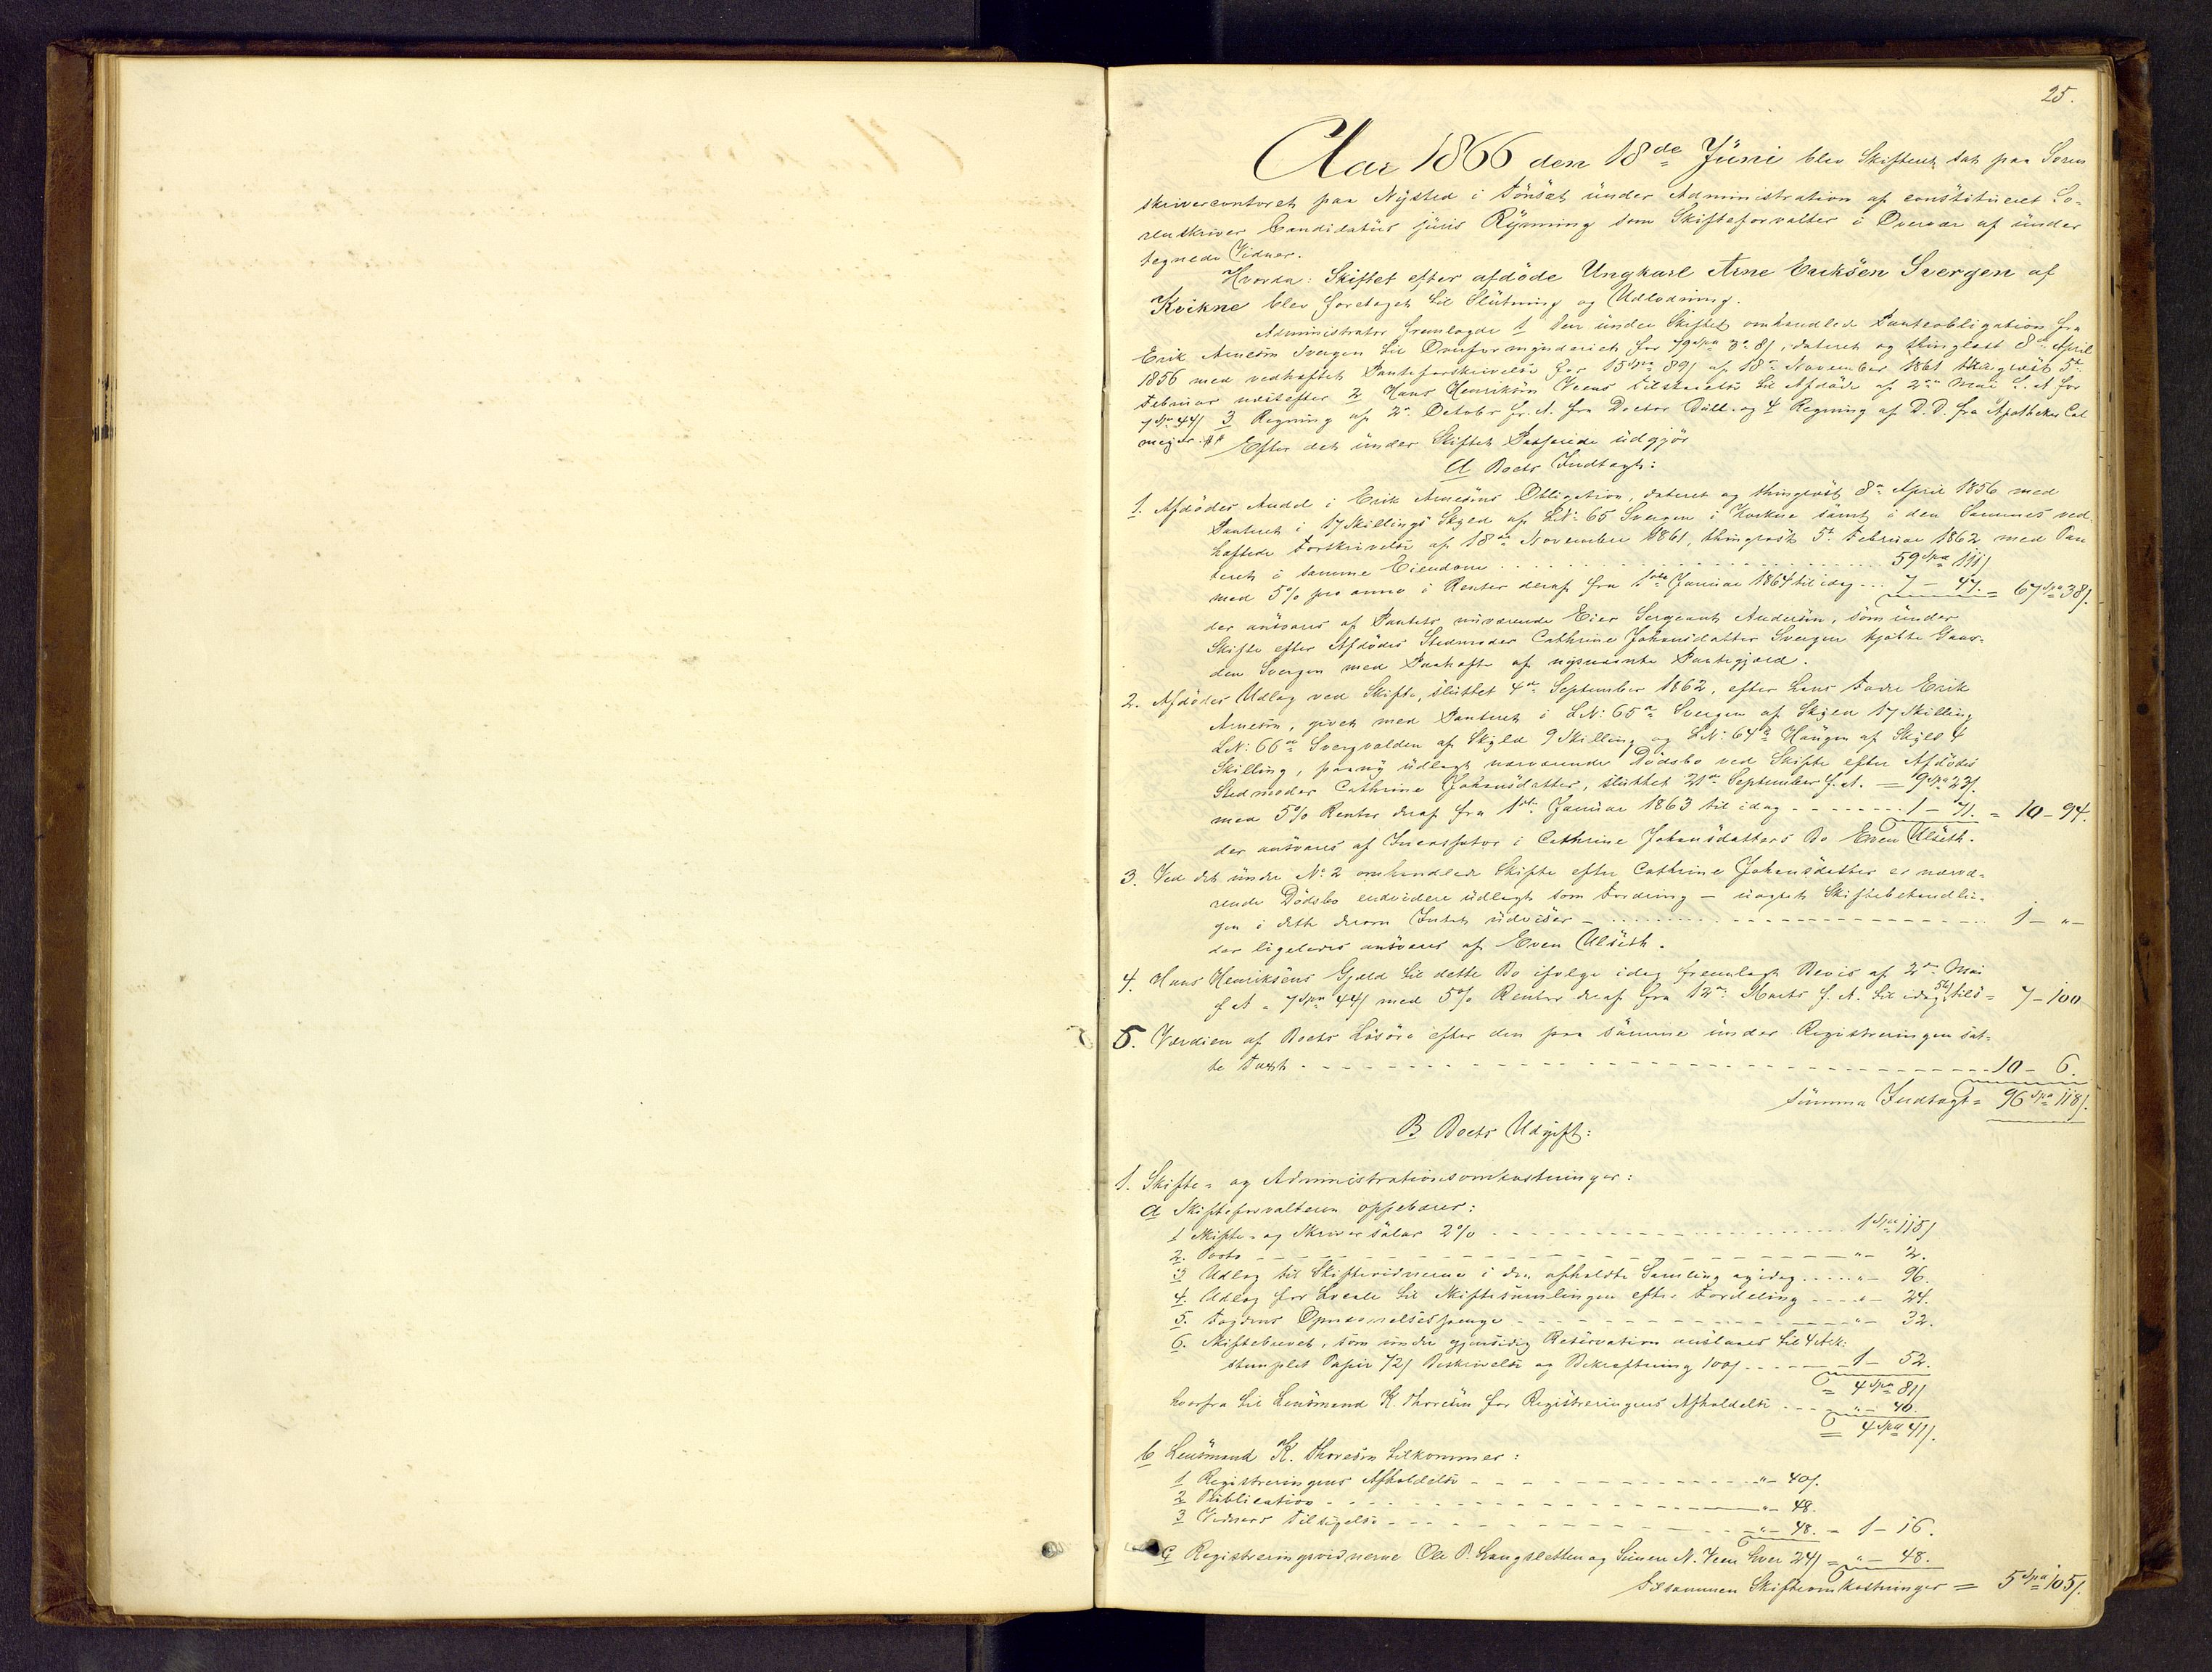 25.
Aar 1866 den 18de Juni blev Skifteret sat paa Soren
skrivercontoret paa Nysted i Tönsæt under Administration af constitueret So-
renskriver Candidatus juris Rynning som Skifteforvalter i Overvær af under
tegnede Vidner.
Hvorda: Skiftet efter afdöde Ungkarl Arne Eriksen Svergen af
Kvikne blev foretaget til Slutning og Udlodning.
Administrator fremlagde 1 den under Skiftet omhandlede Panteobligation fra
Erik Arnesen Svergen til Overformynderiet for 79 Spd 3 8/, dateret og thinglæst 8de April
1856 med vedhæftet Panteforskrivelse for 15 Spd 89/ af 18de November 1861 thinglæst 5te
Februar næstefter 2 Hans Henriksens Veens Tilstaaelse til Afdöde af 2den Mai d. A. for
7 Spd 44/ 3 Regning af 2 Octobr f. A. fra Doctor Dull og 4 Regning af D. D. fra Apotheker Cat
meyer.
Efter det under Skiftet Passerede udgjör
A Boets Indtægt:
1. Afdödes Andel i Erik Arnesens Obligation, dateret og thinglæst 8de April 1856 med
Panteret i 17 Skillings Skyld af LN: 65 Svergen i Kvikne samt i den Sammes ved-
hæftede Forskrivelse af 18de November 1861, thinglæst 5te Februar 1862 med Pan
teret i samme Eiendom 59 Spd 111/
med 5% pro anno i Renter deraf fra 1ste Januar 1864 til idag 7 - 47. = 67 Spd 38/.
der ansvares af Pantets nuværende Eier Sergeant Andersen, som under
Skifte efter Afdödes Stedmoder Cathrine Johansdatter Svergen kjöbte Gaar-
den Svergen med Paahæfte af nysnævnte Pantegjæld.
2. Afdödes Udlæg ved Skifte, sluttet 4de September 1862, efter hans Fader Erik
Arnesen, givet med Panteret i LN: 65a Svergen af Skyld 17 Skilling
LN: 66a Svergvolden af Skyld 9 Skilling og LN: 64b Haugen af Skyld 4
Skilling, paany udlagt nærværende Dödsbo ved Skifte efter Afdödes
Stedmoder Cathrine Johansdatter, sluttet 21de September f. A. = 9 Spd 23/.
med 5% Renter deraf fra 1ste Januar 1863 til idag 1 - 71. = 10 - 94.
der ansvares af Incassator i Cathrine Johansdatters Bo Even Ulseth.
3. Ved det under No 2 omhandlede Skifte efter Cathrine Johansdatter er nærvæ-
rende Dödsbo endvidere udlagt som Fordring - uagtet Skiftebehandlin-
gen i dette derom Intet udviser - 1 - " -
der ligeledes ansvares af Even Ulseth.
4. Hans Henriksens Gjæld til dette Bo ifölge idag fremlagt Bevis af 2den Mai
f. A. = 7 Spd 44/ med 5% Renter deraf fra 12te Marts f. A. til idag 56/ tils = 7 - 100
5. Værdien af Boets Lösöre efter den paa samme under Registreringen sat-
te Taxt 10 - 6.
Summa Indtægt = 96 Spd 118/.
B Boets Udgift:
1. Skifte- og Administrationsomkostninger:
a Skifteforvalteren oppebærer:
1 Skifte- og Skriversalær 2% 1 Spd 115/
2. Porto " - 2.
3 Udlæg til Skiftevidnerne i den afholdte Samling og idag " - 96.
4. Udlæg for Locale til Skiftesamlingen efter Fordeling " - 24.
5. Fogdens Opnævnelsespenge " - 32.
6. Skiftebrevet, som under gjensidig Reservation anslaaes til 4 Ark:
stemplet Papir 72/ Beskrivelse og Bekræftning 100/ 1 - 52.
= 4 Spd 81/
hvorfra til Lensmand K. Thoresen for Registreringens Afholdelse " - 40.
= 4 Spd 41/.
b Lensmand K. Thoresen tilkommer:
1 Registreringens Afholdelse " - 40/.
2 Publication " - 48.
3 Vidners Tilsigelse " - 48. - 1 - 16.
c Registreringsvidnerne Ole P. Langsletten og Simen N. Veen hver 24/ = " - 48.
Tilsammen Skifteomkostninger = 5 Spd 105/.